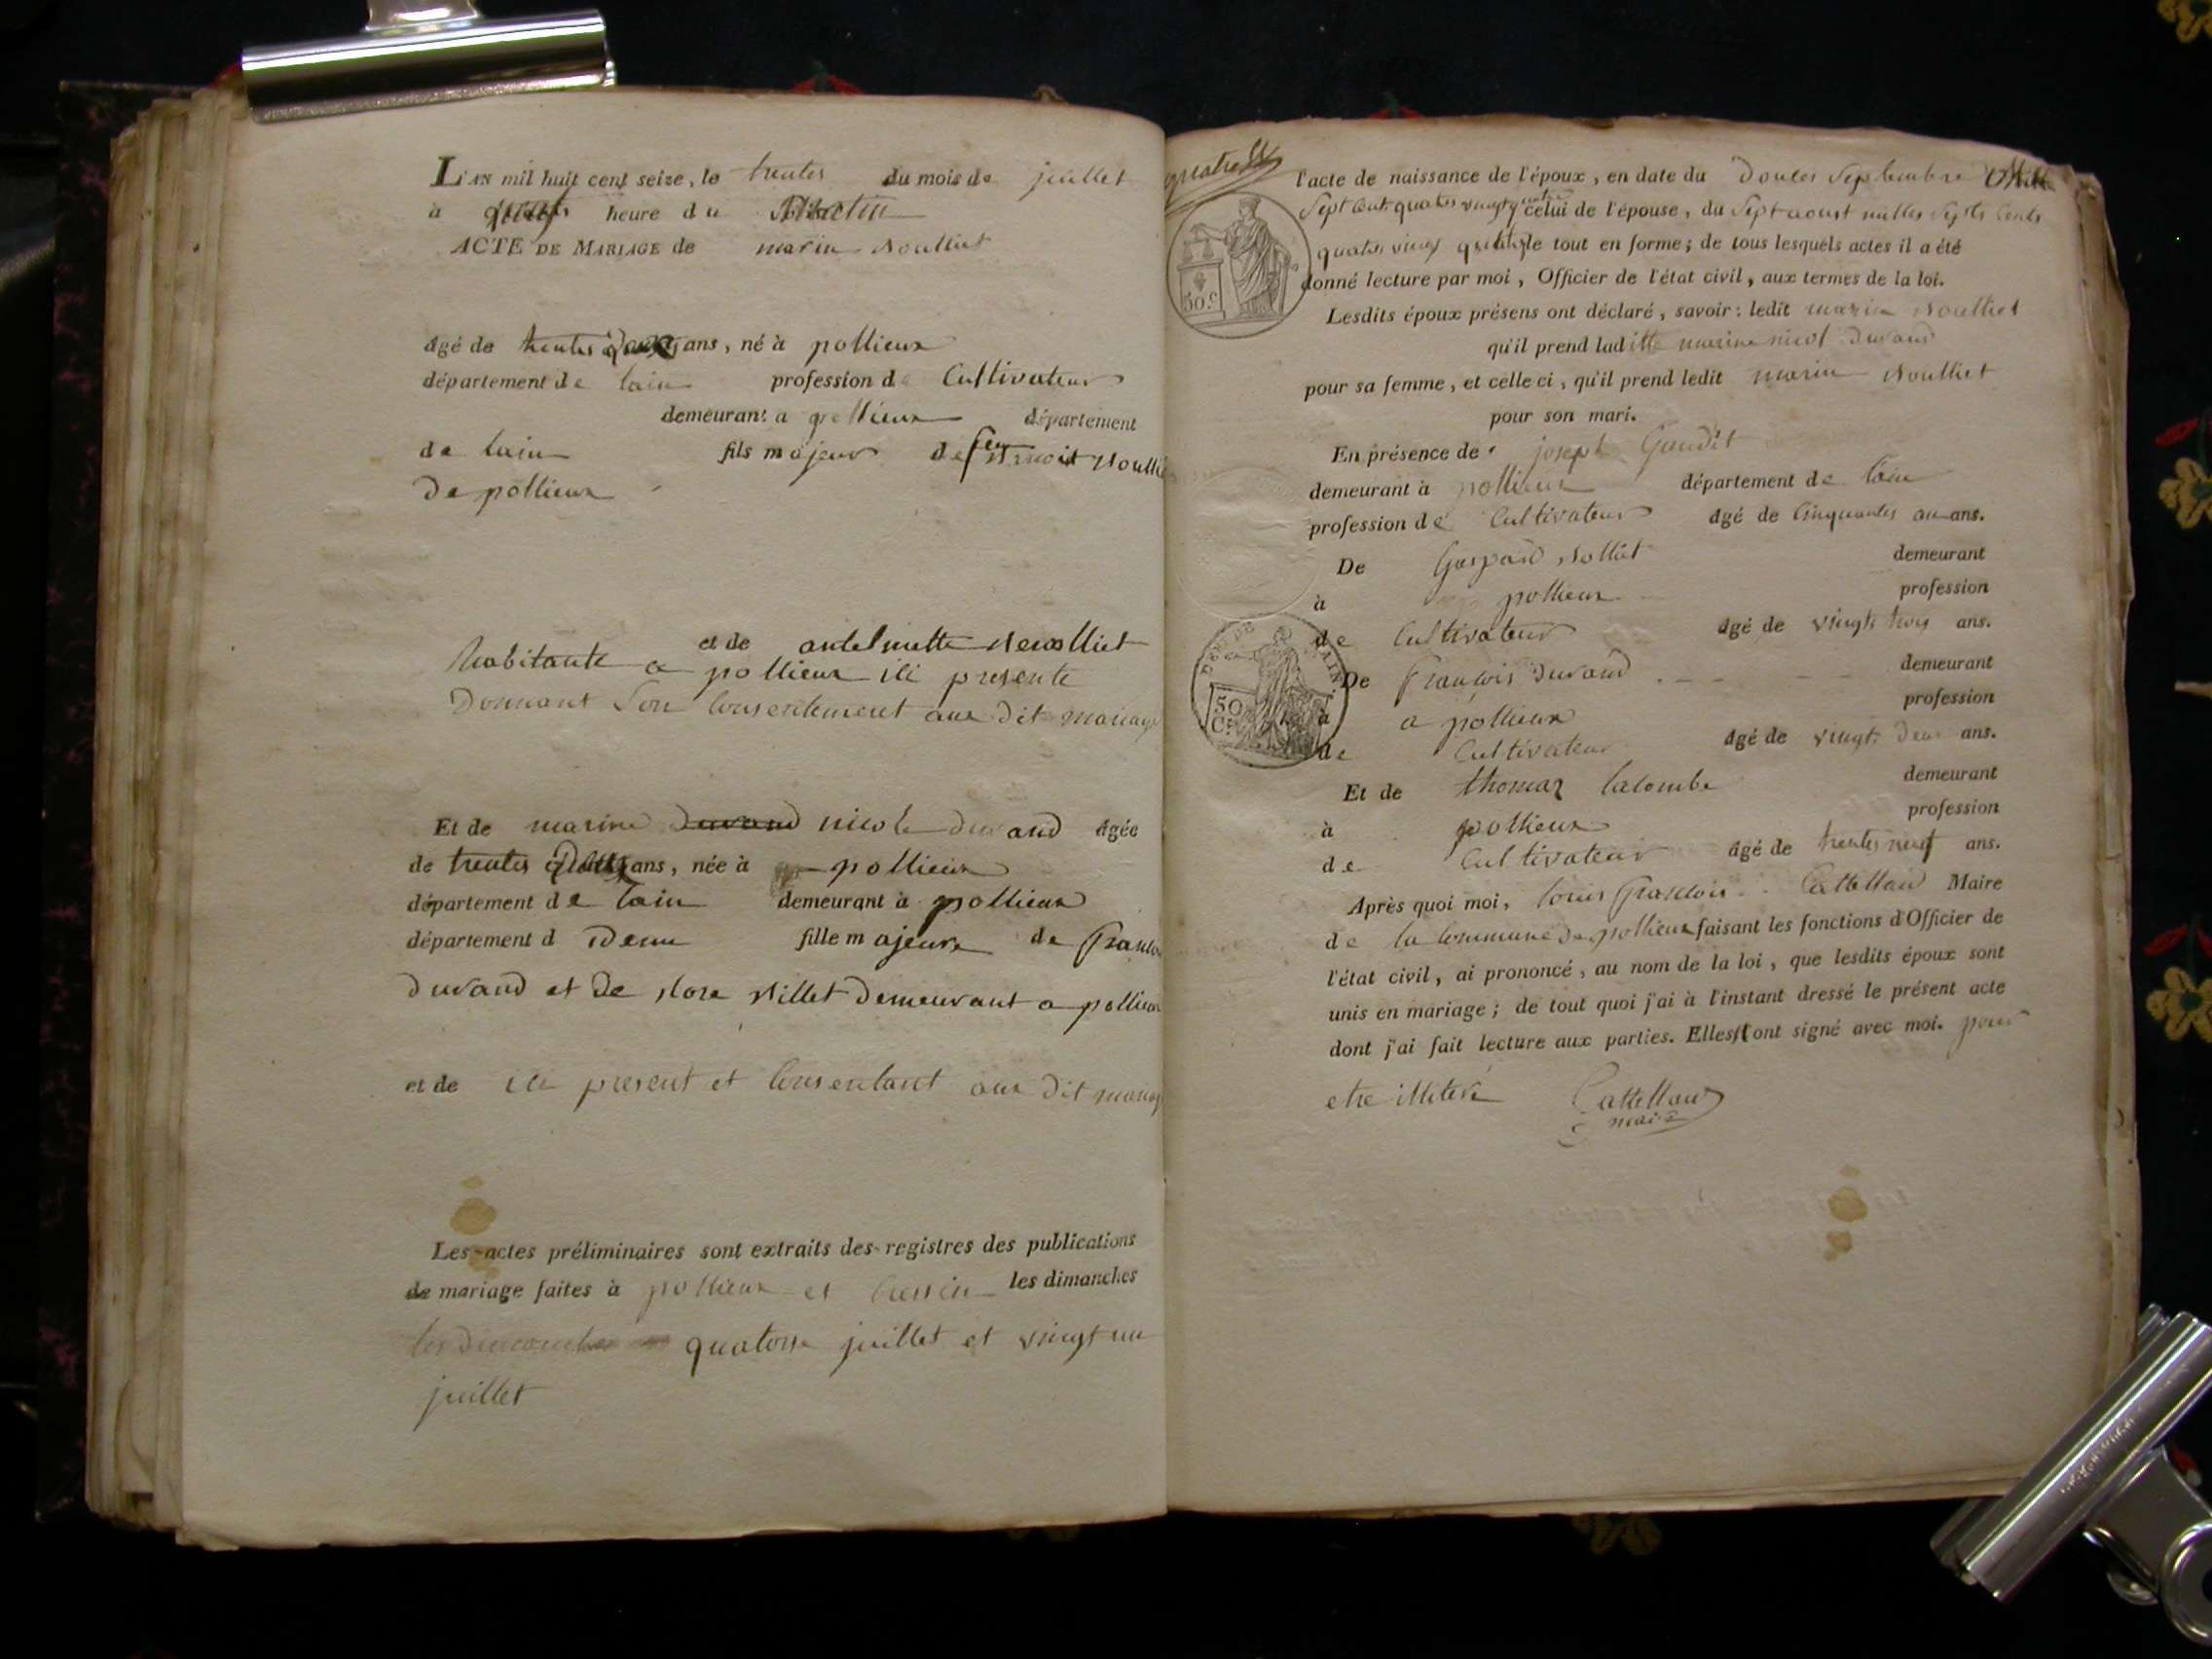 L'AN mil huit cent seize, le trentes du mois de juillet
à heure du Matin
ACTE DE MARIAGE de marin Noulliet
âgé de trentes ans, né à pollieux
département de lain profession de Cultivateur
demeurant a pollieux département
de lain fils majeur de feu
De pollieux
et de antelmette
habitante a pollieux ici presente
Donnant Son Consentement aux dit mariage
Et de marine nicole durand âgée
de trentes ans, née à pollieux
département de lain demeurant à pollieux
département d idem fille majeure de
durand et de demeurant a pollieux
et de ici present et Consentant aux dit mariag
Les actes préliminaires sont extraits des registres des publications
de mariage faites à pollieux et les dimanches
les dimanches quatorse juillet et vingt un
juillet
l'acte de naissance de l'époux, en date du Douses Septembre
Sept Cent quatres vingt quatre celui de l'épouse, du Sept aoust milles Septs Cents
quatres vingt le tout en forme; de tous lesquels actes il a été
donné lecture par moi, Officier de l'état civil, aux termes de la loi.
50.c
Lesdits époux présens ont déclaré, savoir: ledit marin Noulliet
qu'il prend laditte marine nicol Durand
pour sa femme, et celle ci, qu'il prend ledit marin Noulliet
pour son mari.
En présence de joseph Gaudit
demeurant à pollieux département de lain
profession de Cultivateur âgé de Cinquantes ans.
De Gaspard demeurant
à pollieux profession
de Cultivateur âgé de vingt trois ans.
De François Durand demeurant
à a pollieux profession
50
Cs
de Cultivateur âgé de vingt deux ans.
Et de thomas lacombe demeurant
à pollieux profession
de Cultivateur âgé de trentes neuf ans.
Après quoi moi, louis François Cattelland Maire
de la Commune de pollieux faisant les fonctions d'Officier de
l'état civil, ai prononcé, au nom de la loi, que lesdits époux sont
unis en mariage; de tout quoi j'ai à l'instant dressé le présent acte
dont j'ai fait lecture aux parties. Elles ont signé avec moi. pour
etre Cattelland
maire